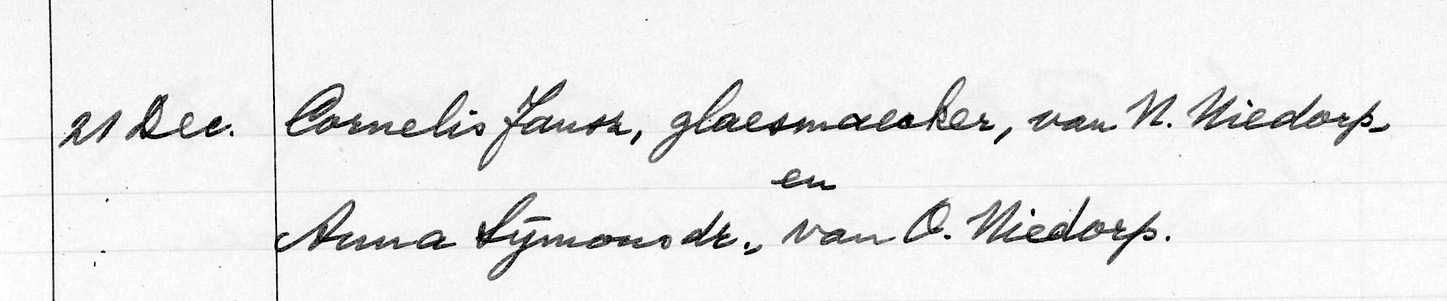 21 Dec. Cornelis Jansz, glaesmaecker, van N. Niedorp
en
Anna Sÿmonsdr., van O. Niedorp.